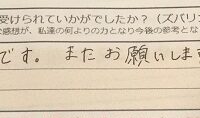 受けられていかがでしたか？（ズバリ
な感想が、私達の何よりの力となり今後の参考とな
です。またお願いしま